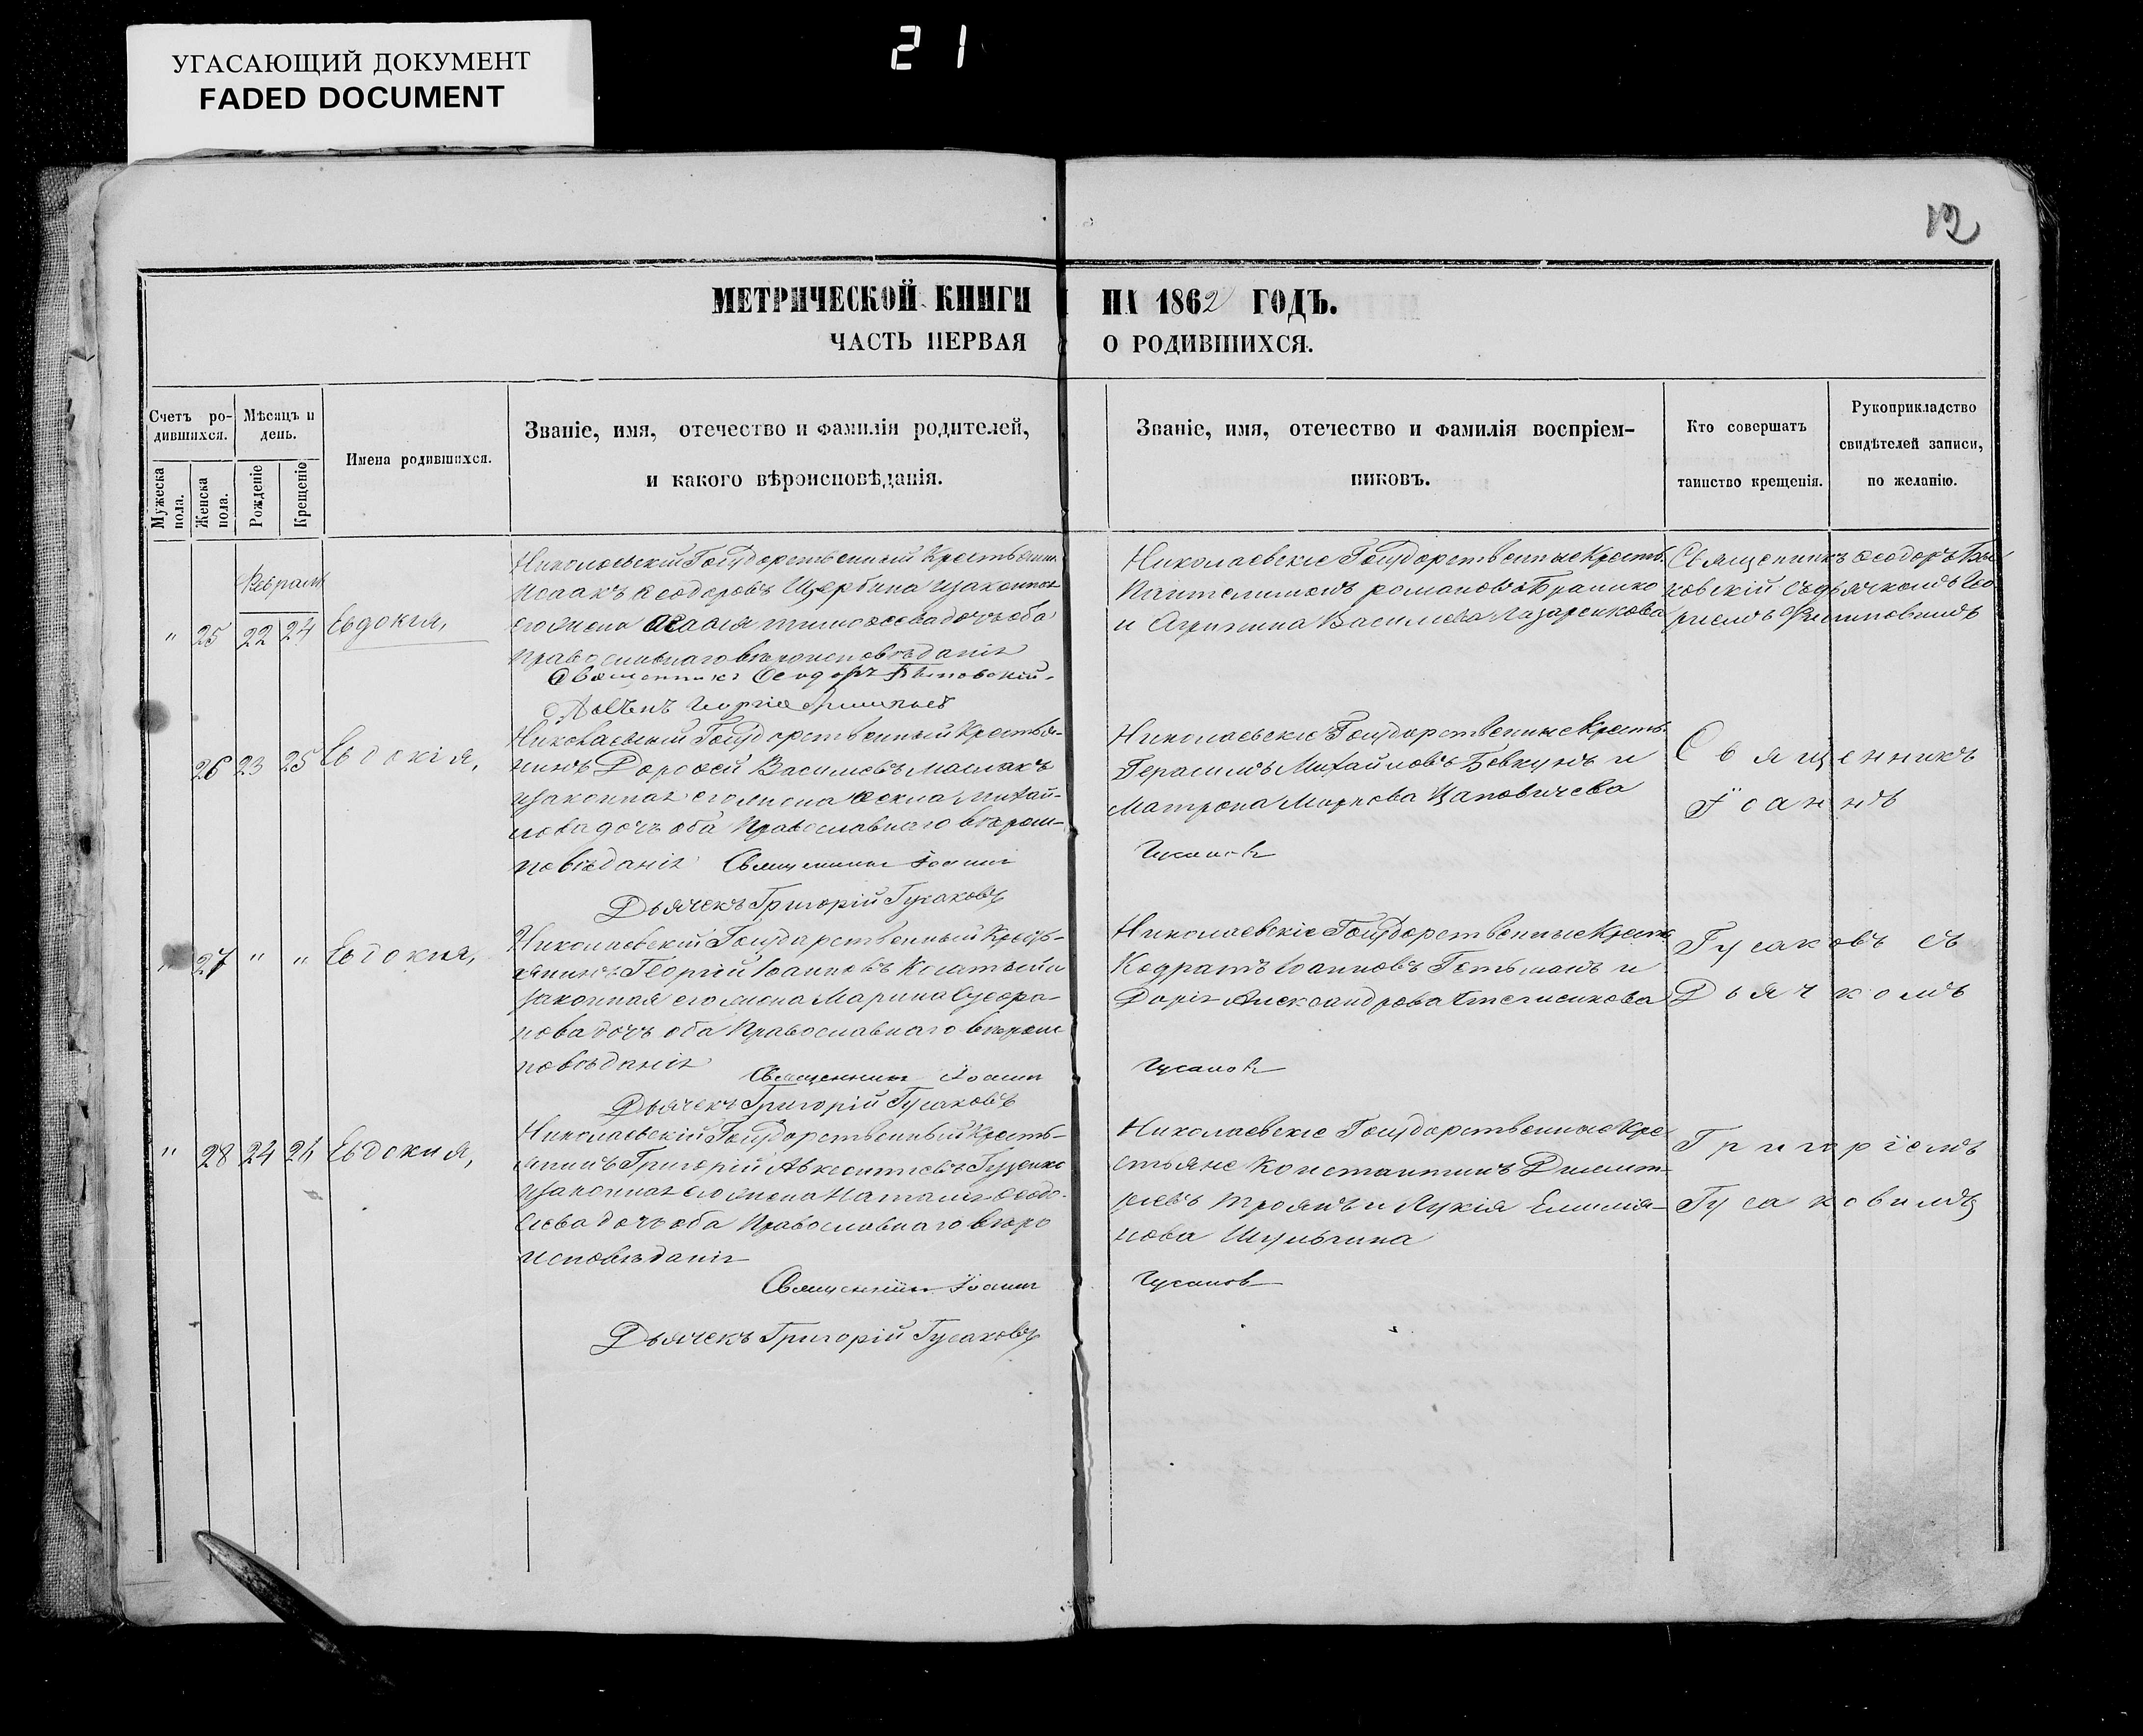 УГАСАЮЩИЙ ДОКУМЕНТ
FADED DOCUMENT
21
12
МЕТРИЧЕСКОЙ КНИГИ НА 1862 ГОДЪ.
ЧАСТЬ ПЕРВАЯ О РОДИВШИХСЯ.
Счетъ ро-
дившихся.
Мужеска
пола.
Женска
пола.
Мѣсяцъ и
день.
Рожденіе
Крещеніе
Имена родившихся.
Званіе, имя, отечество и фамилія родителей,
и какого вѣроисповѣданія.
Званіе, имя, отечество и фамилія воспріем-
никовъ.
Кто совершатъ
таинство крещенія.
Рукоприкладство
свидѣтелей записи,
по желанію.
Февраля
" 25 22 24 Евдокия,
Николаевский Государственный Крестьянин
Исаакъ Феодоровъ Щербина и законная
его жена Агафія Тимофеева дочь оба
православнаго вѣроисповѣданія
Священникъ Феодоръ
Николаевские Государственные Крестьь
Пантелимонъ романовъ
и Агрипина Василиева Лазаренкова
Священникъ Феодоръ
съ дьячкомъ
26 23 25 Евдокія,
Николаевский Государственный Крестья-
нинъ Дорофей Василиевъ Маслакъ
и законная его жена Фекла Михай-
лова дочь оба Православнаго вѣроис-
повѣданія Священникъ Іоаннъ
Гусаковъ
Дьячекъ Григорій Гусаковъ
Николаевские Государственные Кресть
Герасимъ Михайловъ Бовкунъ и
Матрона Маркова
Священникъ
Іоаннъ
" 27 " " Евдокия,
Николаевский Государственный Кресть-
янинъ Георгій Іоанновъ
законная его жена Марина
нова дочь оба Православнаго вѣроис
повѣданія Священникъ Іоаннъ
Гусаковъ
Дьячекъ Григорій Гусаковъ
Николаевскіе Государственные Крестья
Кодратъ Іоанновъ Гетьманъ и
Дарія Александрова
Гусаковъ съ
Дьячкомъ
" 28 24 26 Евдокия,
Николаевскій Государственный Кресть-
янинъ Григорій Авксентиевъ Гуденко
и законная его жена Наталия Феодо-
сиева дочь оба Православнаго вѣро
исповѣданія
Священникъ Іоаннъ
Гусаковъ
Дьячекъ Григорій Гусаковъ
Николаевские Государственные Кре
стьяне Константинъ Димит-
риевъ Троянъ и Лукія Емилія-
нова Шульгина
Григоріемъ
Гусаковимъ